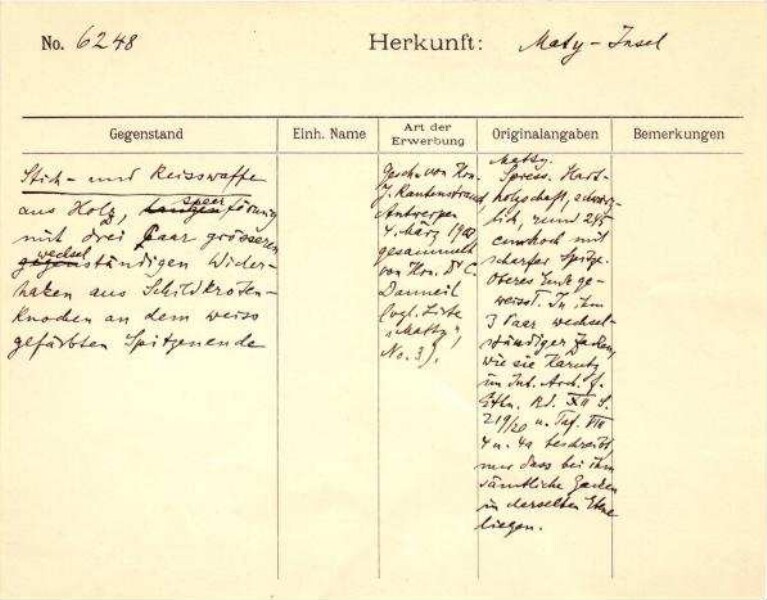 No. 6248
Herkunft: Maty-Insel
Gegenstand
Einh. Name
Art der Erwerbung
Originalangaben
Bemerkungen
Stich- und Reisswaffe
aus Holz, lanzen speer förmig
mit drei Paar grösseren
gegen wechselständigen Wider-
haken aus Schildkröten-
knochen an dem weiss
gefärbten Spitzenende
Gesch. von Hrn.
J. Rautenstrauch,
Antwerpen
4. März 190
gesammelt
von Hrn. Dr C.
Danneil
(vgl. Liste
"Matty",
No. 3).
Matty.
Speer. Hart-
holzschaft, schwärz-
lich, rund 245
cm hoch mit
scharfer Spitze.
Oberes Ende ge-
weisst. In ihm
3 Paar wechsel-
ständiger Zacken,
wie sie Karutz
im Int. Arch. f.
Ethn. Bd. XII S.
219/20 u. Taf. VIII
4 u. 4a beschreibt,
nur dass bei ihm
sämtliche Zacken
in derselben Ebne
liegen.